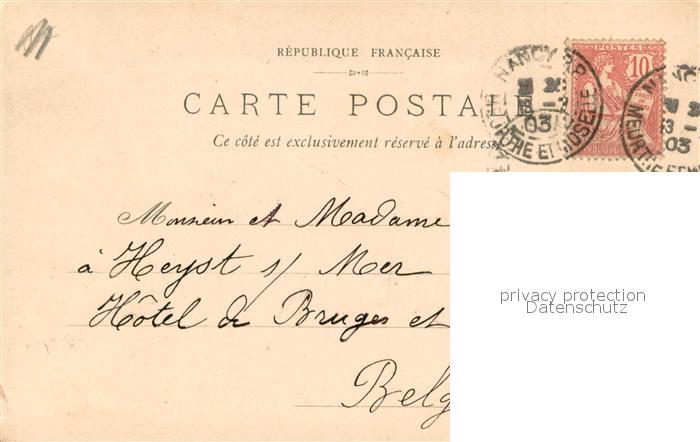 RÉPUBLIQUE FRANÇAISE
CARTE POSTALE
Ce côté est exclusivement réservé à l'adresse
POSTES
10
NANCY R.P.
03
MEURTHE ET MOSELLE
03
Monsieur et Madame
à Heyst s/ Mer
Hôtel de Bruges et
Belg
privacy protection
Datenschutz